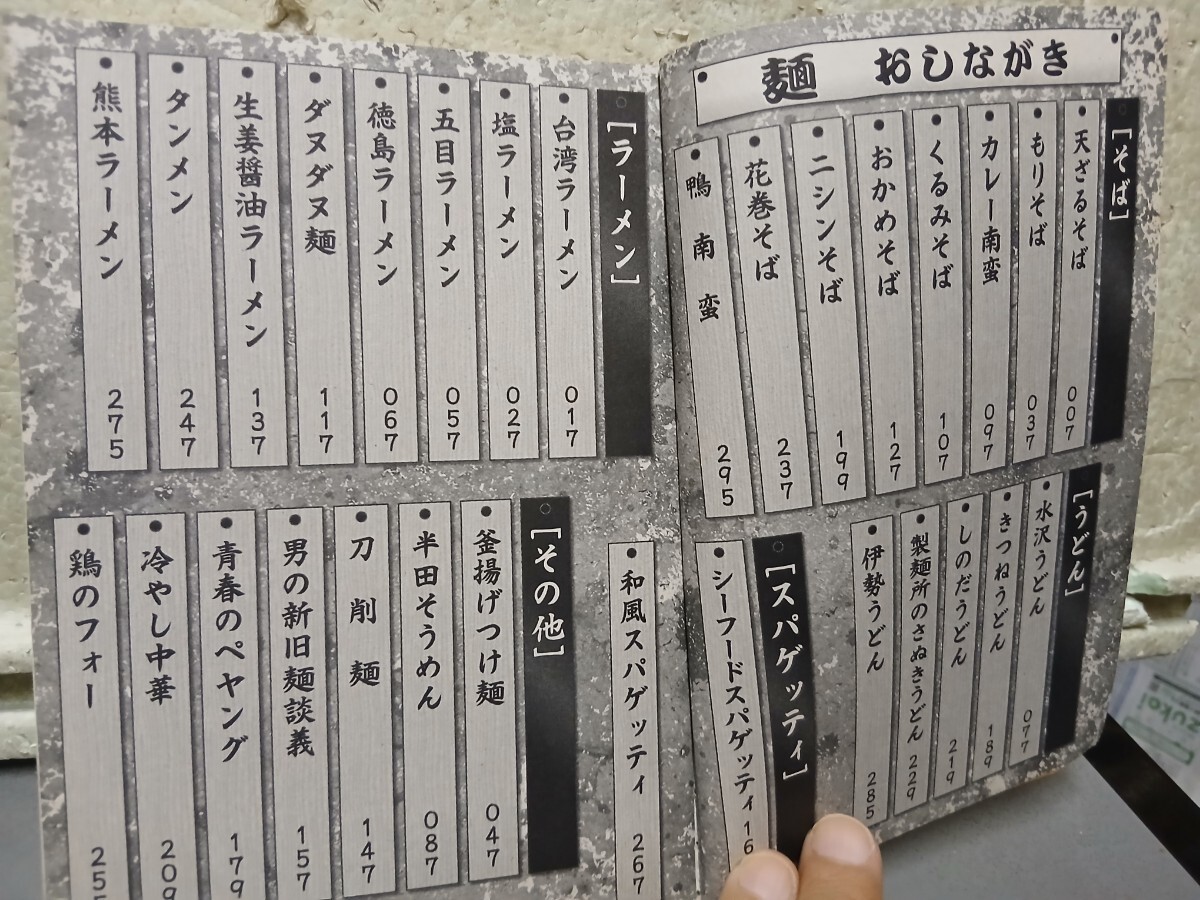 麺 おしながき
[そば]
天ざるそば 007
もりそば 037
カレー南蛮 097
くるみそば 107
おかめそば 127
ニシンそば 199
花巻そば 237
鴨南蛮 295
[うどん]
水沢うどん 077
きつねうどん 189
しのだうどん 219
製麺所のさぬきうどん 229
伊勢うどん 285
[スパゲッティ]
シーフードスパゲッティ 16
和風スパゲッティ 267
[ラーメン]
台湾ラーメン 017
塩ラーメン 027
五目ラーメン 057
徳島ラーメン 067
ダヌダヌ麺 117
生姜醤油ラーメン 137
タンメン 247
熊本ラーメン 275
[その他]
釜揚げつけ麺 047
半田そうめん 087
刀削麺 147
男の新旧麺談義 157
青春のペヤング 179
冷やし中華 209
鶏のフォー 255
ukoi